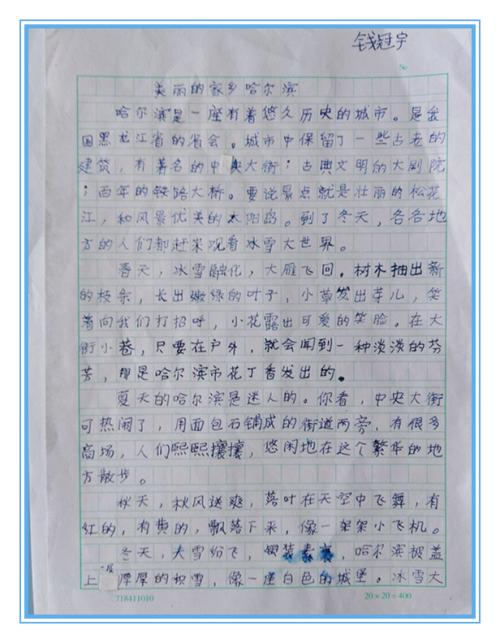 钱冠宇
No
美丽的家乡哈尔滨
哈尔滨是一座有着悠久历史的城市。是我
国黑龙江省的省会。城市中保留了一些古老的
建筑，有著名的中央大街；古典文明的大剧院
；百年的铁路大桥。要说景点就是壮丽的松花
江，和风景优美的太阳岛。到了冬天，各各地
方的人们都赶来观看冰雪大世界。
春天，冰雪融化，大雁飞回。树木抽出新
的枝条，长出嫩绿的叶子，小草发出芽儿，笑
着向我们打招呼，小花露出可爱的笑脸。在大
街小巷，只要在户外，就会闻到一种淡淡的芬
芳，那是哈尔滨市花丁香发出的。
夏天的哈尔滨是迷人的。你看，中央大街
可热闹了，用面包石铺成的街道两旁，有很多
商场，人们熙熙攘攘，悠闲地在这个繁华的地
方散步。
秋天，秋风送爽，落叶在天空中飞舞，有
红的，有黄的，飘落下来，像一架架小飞机。
冬天，大雪纷飞，银装素裹，哈尔滨被盖
上一层厚厚的积雪，像一座白色的城堡。冰雪大
718411010 20×20=400